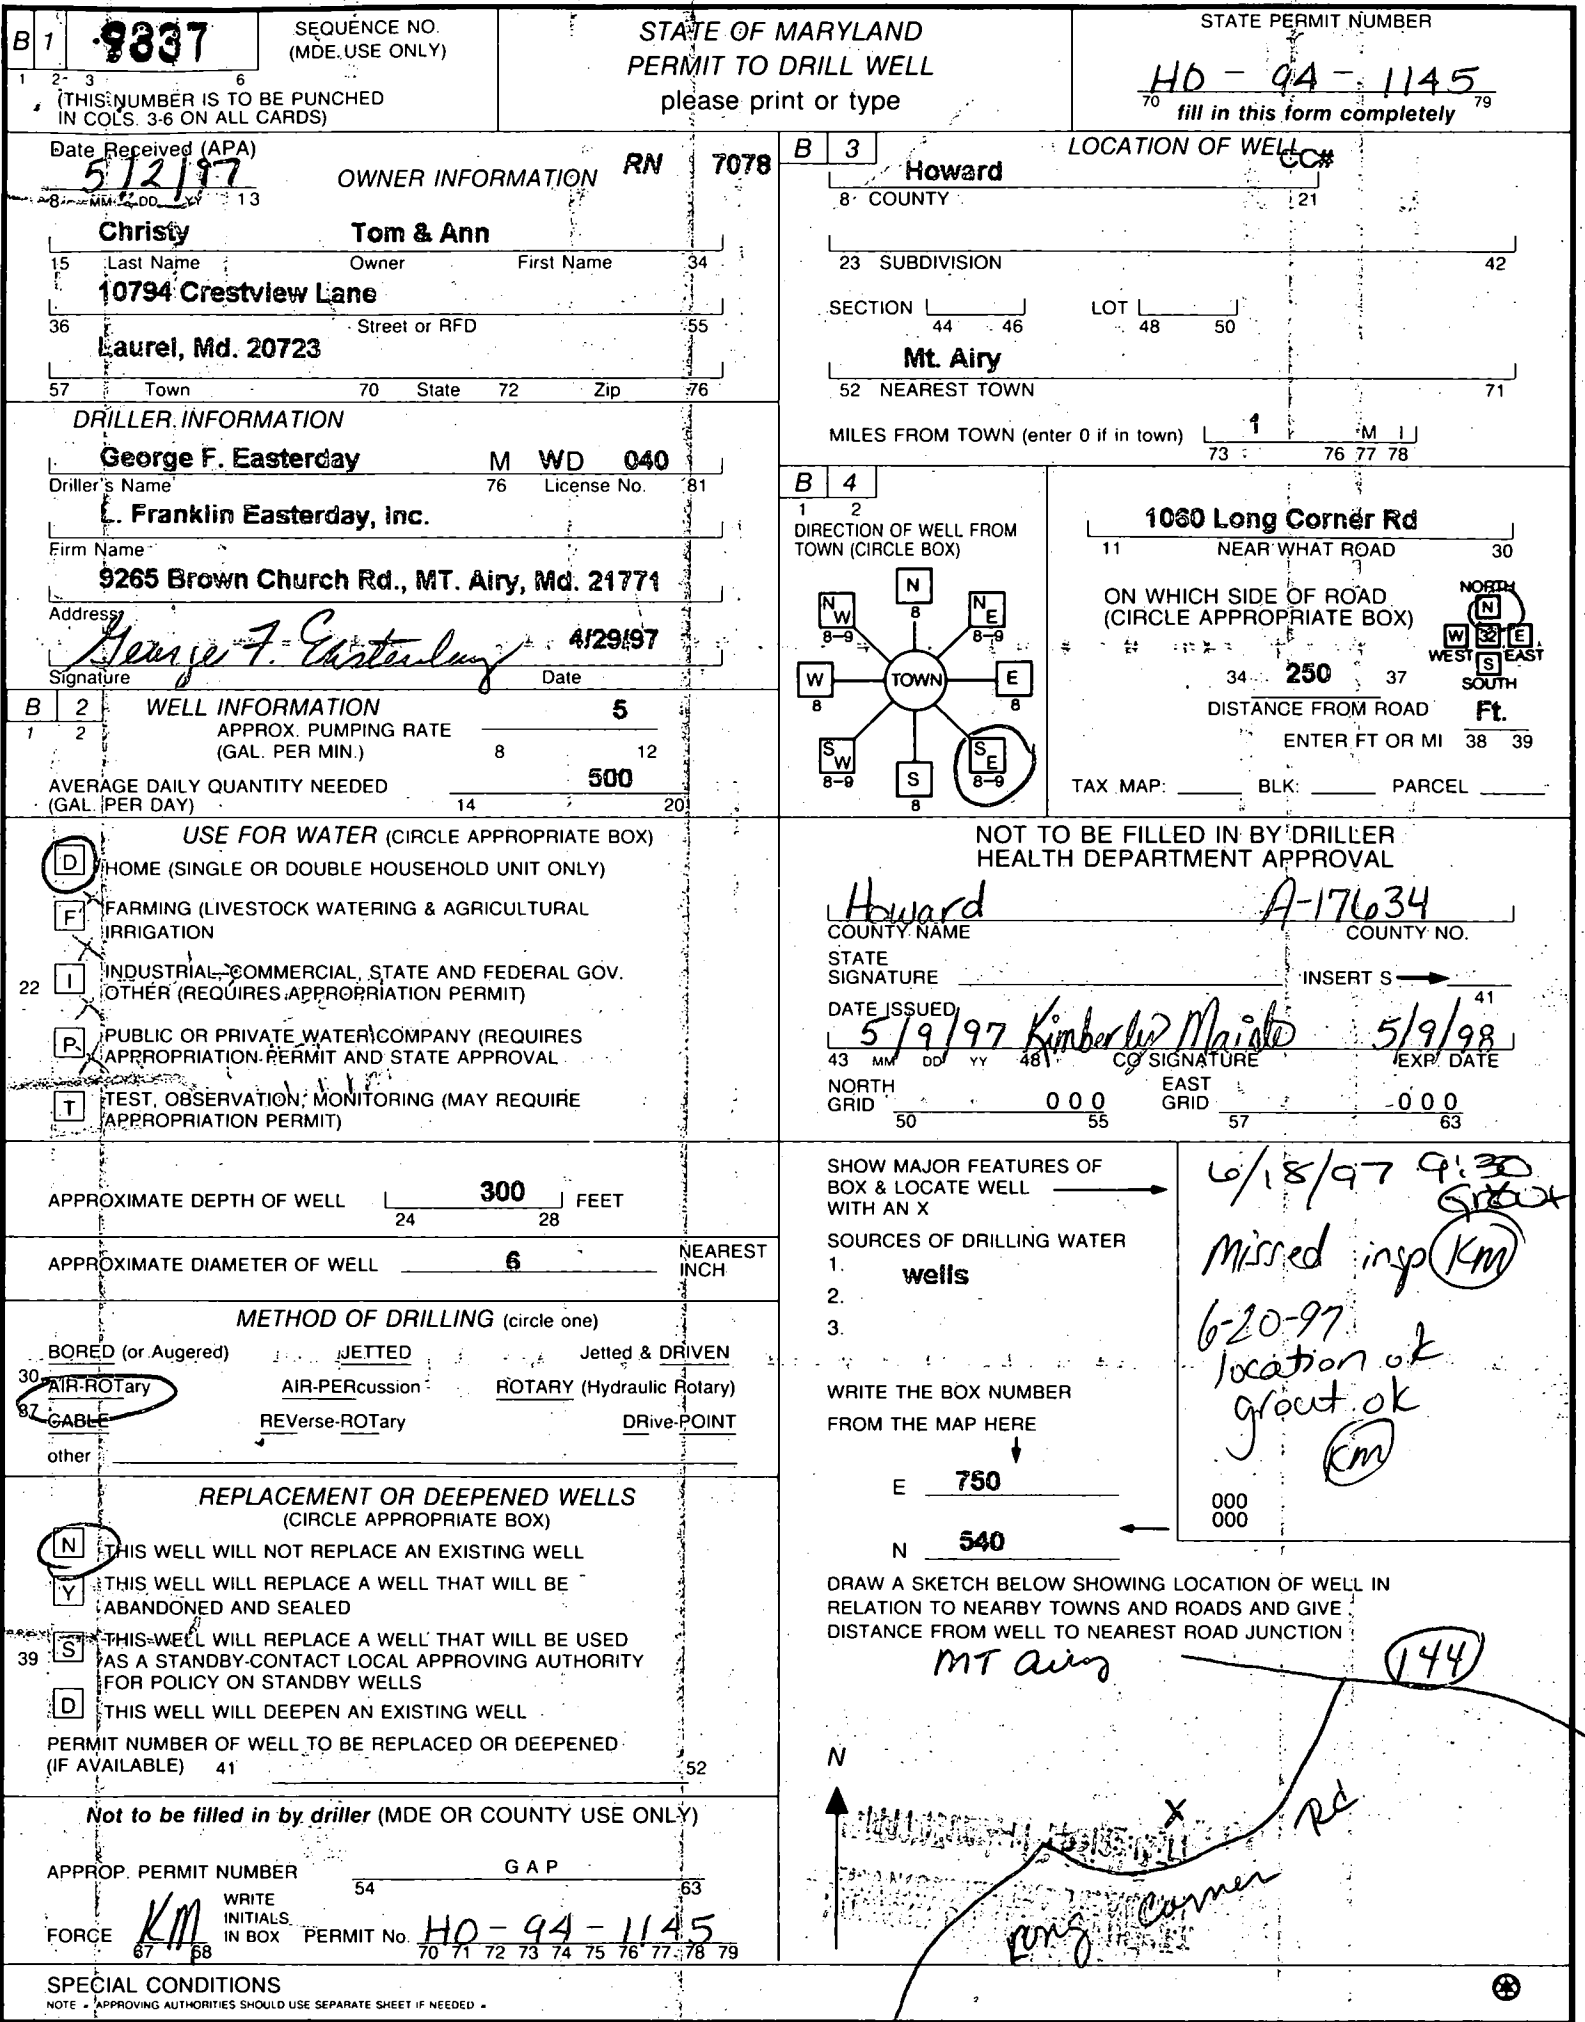 B 1 9837 SEQUENCE NO. (MDE USE ONLY)
1 2 3 6
(THIS NUMBER IS TO BE PUNCHED
IN COLS. 3-6 ON ALL CARDS)
STATE OF MARYLAND
PERMIT TO DRILL WELL
please print or type
STATE PERMIT NUMBER
HO - 94 - 1145
70 79
fill in this form completely
Date Received (APA)
5/2/97
8 MM DD YY 13
OWNER INFORMATION RN 7078
Christy Tom & Ann
15 Last Name Owner First Name 34
10794 Crestview Lane
36 Street or RFD 55
Laurel, Md. 20723
57 Town 70 State 72 Zip 76
DRILLER INFORMATION
George F. Easterday M WD 040
Driller's Name 76 License No. 81
L. Franklin Easterday, Inc.
Firm Name
9265 Brown Church Rd., MT. Airy, Md. 21771
Address
George F. Easterday 4/29/97
Signature Date
B 2 WELL INFORMATION
1 2
APPROX. PUMPING RATE 5
(GAL. PER MIN.) 8 12
AVERAGE DAILY QUANTITY NEEDED 500
(GAL. PER DAY) 14 20
USE FOR WATER (CIRCLE APPROPRIATE BOX)
D HOME (SINGLE OR DOUBLE HOUSEHOLD UNIT ONLY)
F FARMING (LIVESTOCK WATERING & AGRICULTURAL
IRRIGATION
22 I INDUSTRIAL, COMMERCIAL, STATE AND FEDERAL GOV.
OTHER (REQUIRES APPROPRIATION PERMIT)
P PUBLIC OR PRIVATE WATER COMPANY (REQUIRES
APPROPRIATION PERMIT AND STATE APPROVAL
T TEST, OBSERVATION, MONITORING (MAY REQUIRE
APPROPRIATION PERMIT)
APPROXIMATE DEPTH OF WELL 300 FEET
24 28
APPROXIMATE DIAMETER OF WELL 6 NEAREST
INCH
METHOD OF DRILLING (circle one)
BORED (or Augered) JETTED Jetted & DRIVEN
30 AIR-ROTary AIR-PERcussion ROTARY (Hydraulic Rotary)
37 CABLE REVerse-ROTary DRive-POINT
other
REPLACEMENT OR DEEPENED WELLS
(CIRCLE APPROPRIATE BOX)
N THIS WELL WILL NOT REPLACE AN EXISTING WELL
Y THIS WELL WILL REPLACE A WELL THAT WILL BE
ABANDONED AND SEALED
39 S THIS WELL WILL REPLACE A WELL THAT WILL BE USED
AS A STANDBY-CONTACT LOCAL APPROVING AUTHORITY
FOR POLICY ON STANDBY WELLS
D THIS WELL WILL DEEPEN AN EXISTING WELL
PERMIT NUMBER OF WELL TO BE REPLACED OR DEEPENED
(IF AVAILABLE) 41 52
Not to be filled in by driller (MDE OR COUNTY USE ONLY)
APPROP. PERMIT NUMBER G A P
54 63
FORCE KM WRITE INITIALS IN BOX PERMIT No. HO - 94 - 1145
67 68 70 71 72 73 74 75 76 77 78 79
SPECIAL CONDITIONS
NOTE - APPROVING AUTHORITIES SHOULD USE SEPARATE SHEET IF NEEDED -
B 3 LOCATION OF WELL CC#
Howard
8 COUNTY 21
23 SUBDIVISION 42
SECTION LOT
44 46 48 50
Mt. Airy
52 NEAREST TOWN 71
MILES FROM TOWN (enter 0 if in town) 1 M I
73 76 77 78
B 4
1 2
DIRECTION OF WELL FROM
TOWN (CIRCLE BOX)
N 8
NW 8-9 NE 8-9
W 8 TOWN E 8
SW 8-9 SE 8-9
S 8
1060 Long Corner Rd
11 NEAR WHAT ROAD 30
ON WHICH SIDE OF ROAD
(CIRCLE APPROPRIATE BOX)
NORTH
N
W 32 E
WEST S EAST
SOUTH
34 250 37
DISTANCE FROM ROAD Ft.
ENTER FT OR MI 38 39
TAX MAP: BLK: PARCEL
NOT TO BE FILLED IN BY DRILLER
HEALTH DEPARTMENT APPROVAL
Howard A-17634
COUNTY NAME COUNTY NO.
STATE
SIGNATURE INSERT S
41
DATE ISSUED
5/9/97 Kimberly Maiste 5/9/98
43 MM DD YY 48 CO SIGNATURE EXP. DATE
NORTH GRID 0 0 0 EAST GRID 0 0 0
50 55 57 63
SHOW MAJOR FEATURES OF
BOX & LOCATE WELL
WITH AN X
SOURCES OF DRILLING WATER
1. wells
2.
3.
WRITE THE BOX NUMBER
FROM THE MAP HERE
E 750
N 540
6/18/97 9:30
Grout
Missed insp KM
6-20-97
location ok
grout ok
KM
000
000
DRAW A SKETCH BELOW SHOWING LOCATION OF WELL IN
RELATION TO NEARBY TOWNS AND ROADS AND GIVE
DISTANCE FROM WELL TO NEAREST ROAD JUNCTION
MT airy 144
N
X
Long Corner Rd